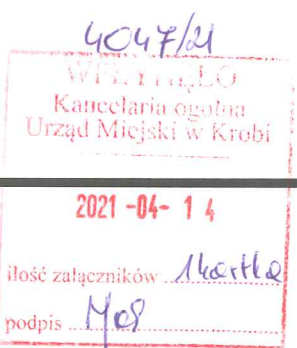 4047/21
WPŁYNĘŁO
Kancelaria ogólna
Urząd Miejski w Krobi
2021 -04- 1 4
ilość załączników ... 1 kartka
podpis ...